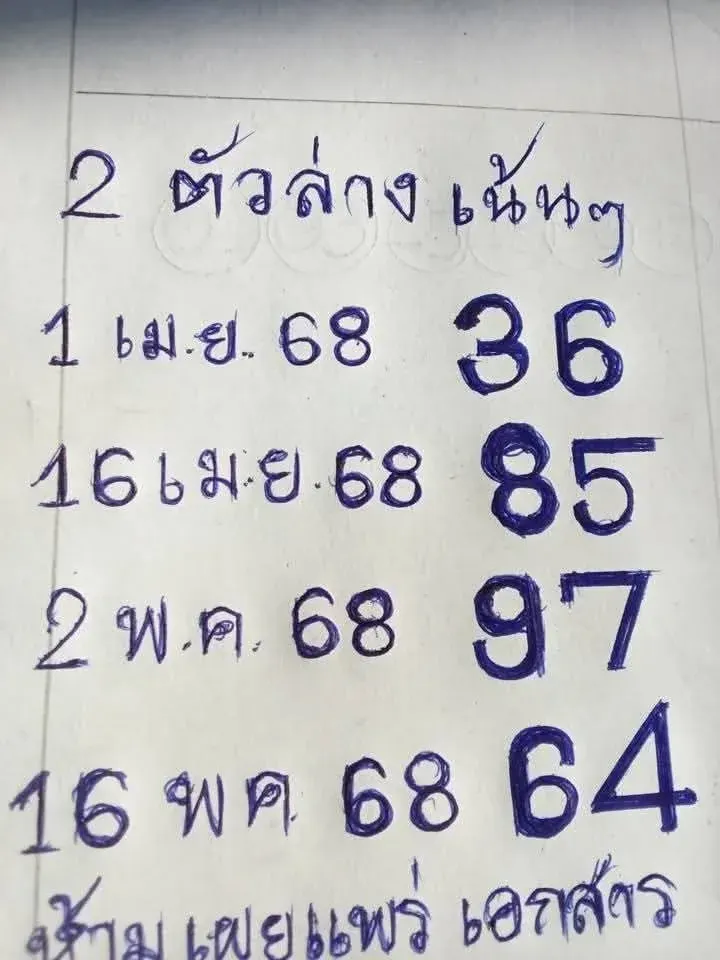 2 ตัวล่าง เน้นๆ
1 เม.ย. 68 36
16 เม.ย. 68 85
2 พ.ค. 68 97
16 พค 68 64
ห้ามเผยแพร่ เอกสาร